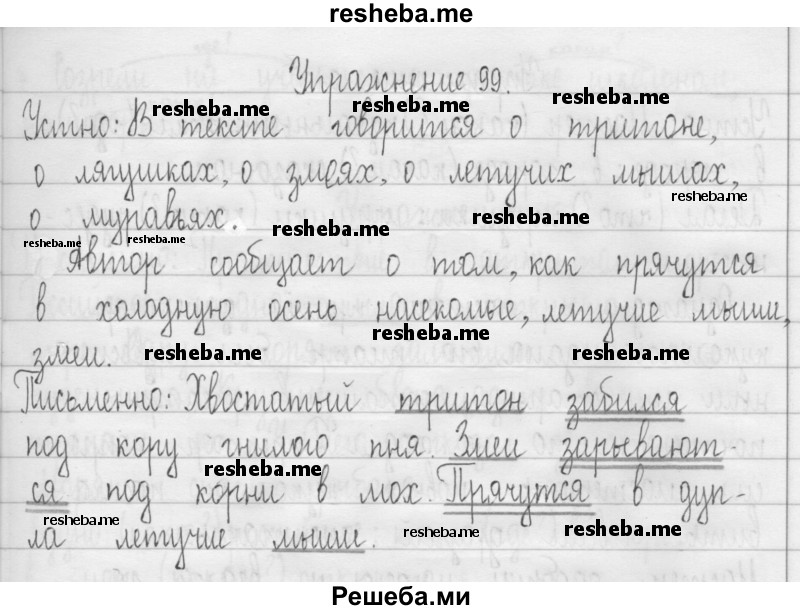 resheba.me
Упражнение 99.
resheba.me resheba.me resheba.me
Устно: В тексте говорится о тритоне,
о лягушках, о змеях, о летучих мышах,
resheba.me
о муравьях.
resheba.me resheba.me resheba.me
Автор сообщает о том, как прячутся
в холодную осень насекомые, летучие мыши,
resheba.me
змеи.
resheba.me resheba.me
Письменно: Хвостатый тритон забился
под кору гнилого пня. Змеи зарывают-
resheba.me
ся под корни в мох. Прячутся в дуп-
resheba.me resheba.me resheba.me
ла летучие мыши.
Решеба.ми